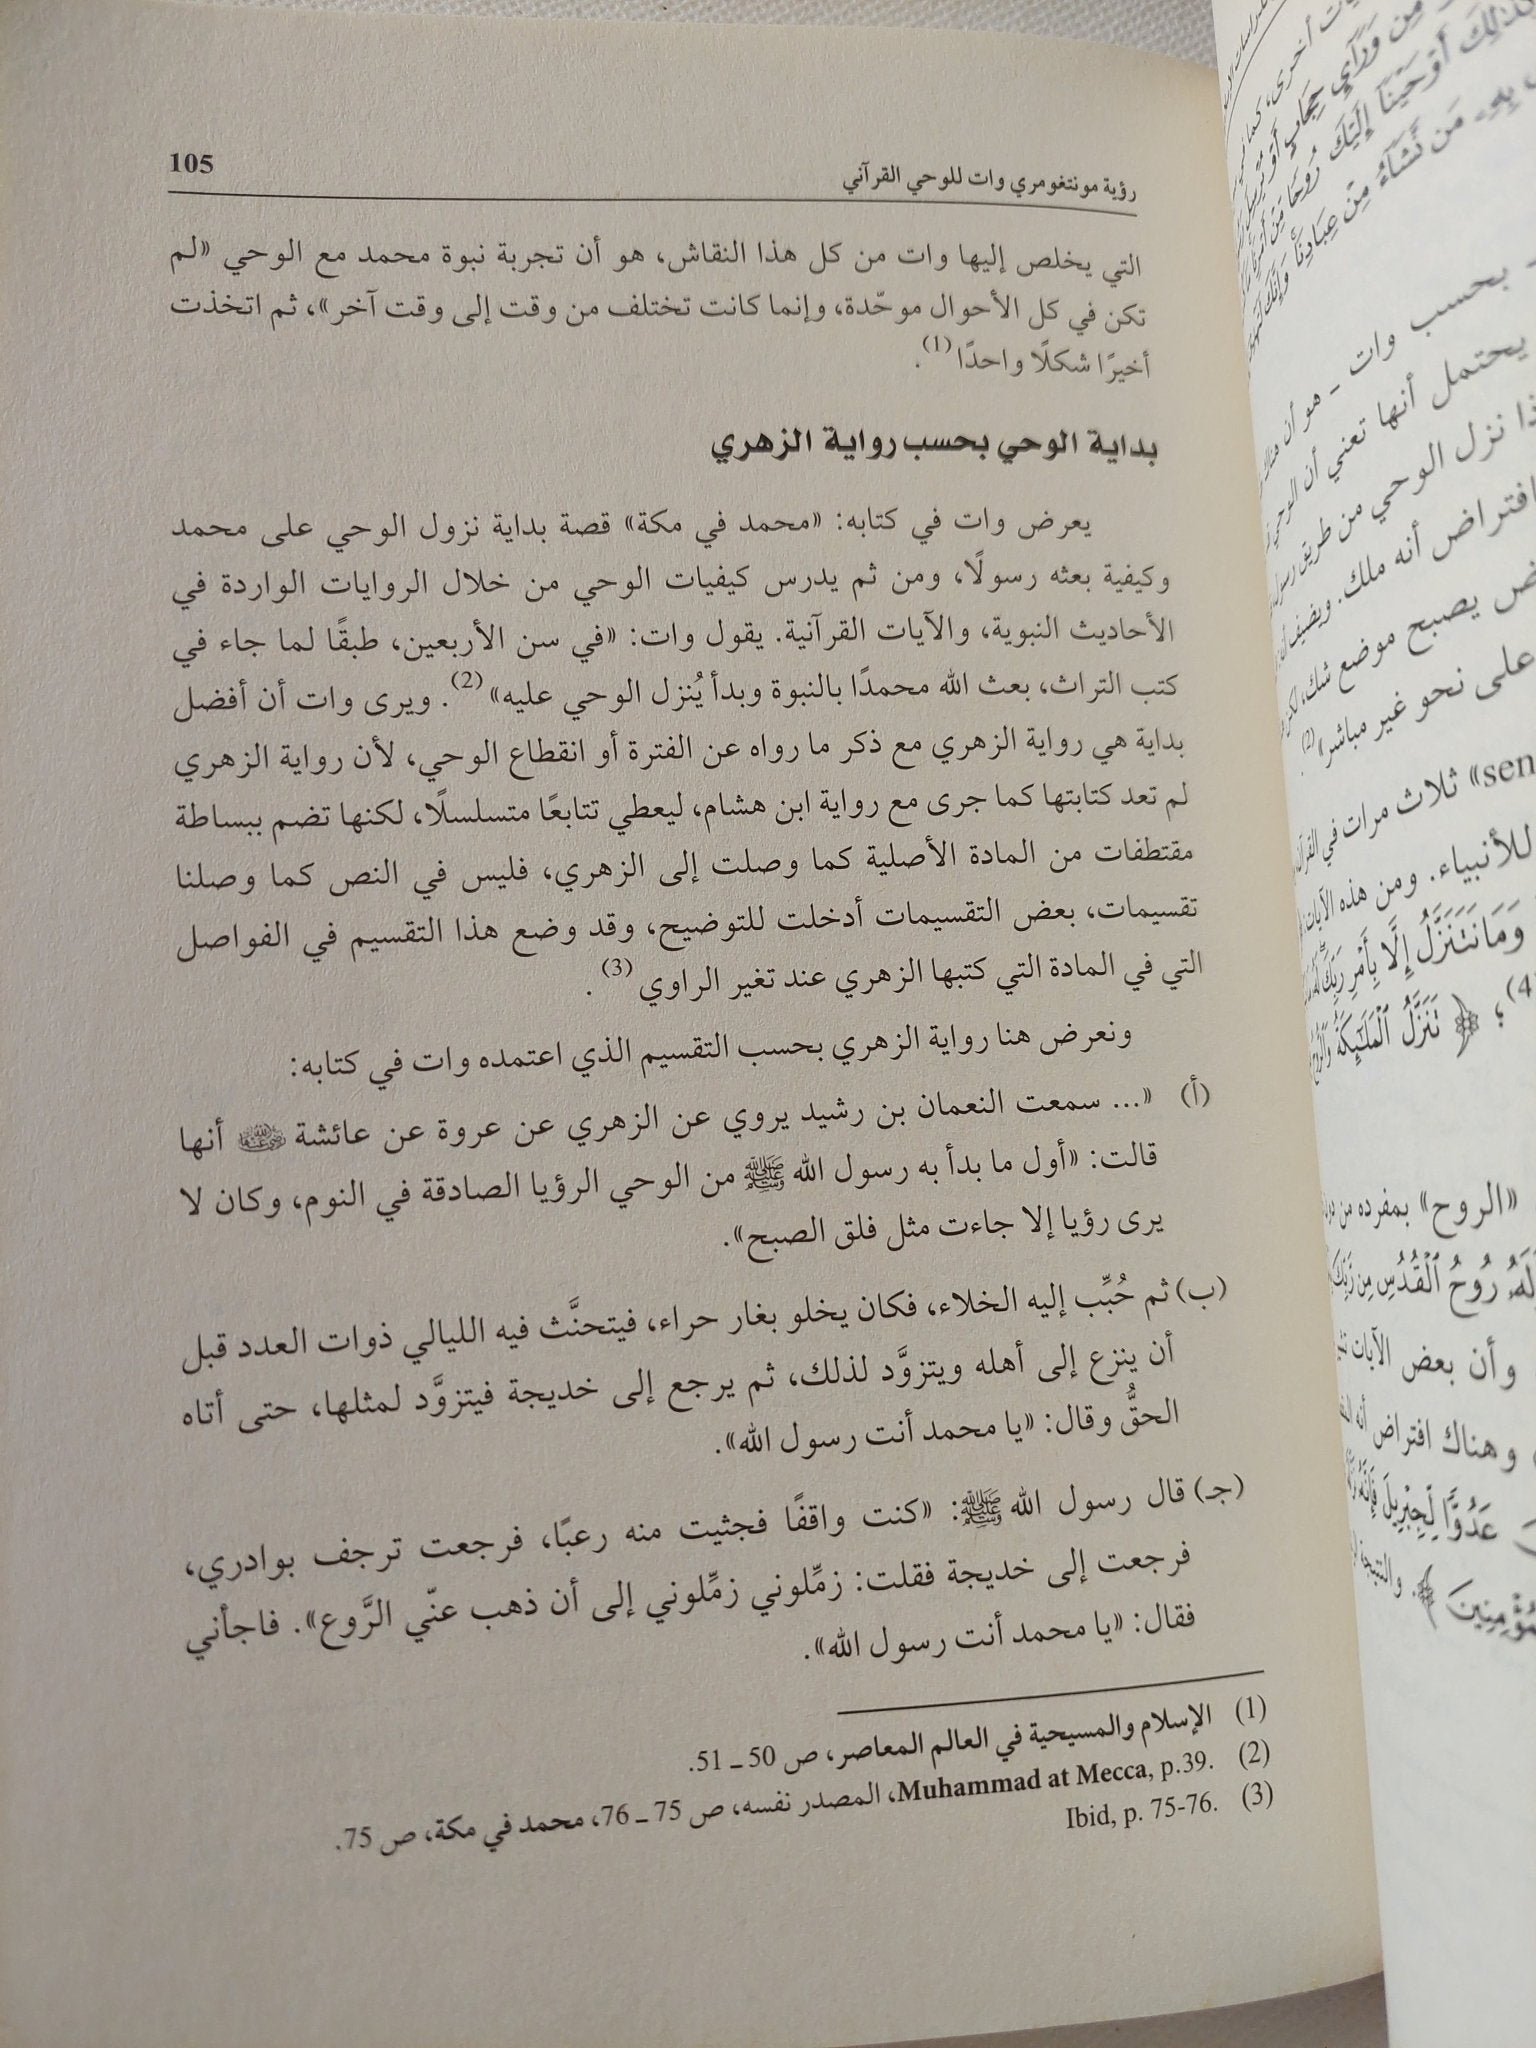 رؤية مونتغومري وات للوحي القرآني
105
التي يخلص إليها وات من كل هذا النقاش، هو أن تجربة نبوة محمد مع الوحي «لم
تكن في كل الأحوال موحّدة، وإنما كانت تختلف من وقت إلى وقت آخر»، ثم اتخذت
أخيرًا شكلًا واحدًا(1).
بداية الوحي بحسب رواية الزهري
يعرض وات في كتابه: «محمد في مكة» قصة بداية نزول الوحي على محمد
وكيفية بعثه رسولًا، ومن ثم يدرس كيفيات الوحي من خلال الروايات الواردة في
الأحاديث النبوية، والآيات القرآنية. يقول وات: «في سن الأربعين، طبقًا لما جاء في
كتب التراث، بعث الله محمدًا بالنبوة وبدأ يُنزل الوحي عليه»(2). ويرى وات أن أفضل
بداية هي رواية الزهري مع ذكر ما رواه عن الفترة أو انقطاع الوحي، لأن رواية الزهري
لم تعد كتابتها كما جرى مع رواية ابن هشام، ليعطي تتابعًا متسلسلًا، لكنها تضم ببساطة
مقتطفات من المادة الأصلية كما وصلت إلى الزهري، فليس في النص كما وصلنا
تقسيمات، بعض التقسيمات أدخلت للتوضيح، وقد وضع هذا التقسيم في الفواصل
التي في المادة التي كتبها الزهري عند تغير الراوي(3).
ونعرض هنا رواية الزهري بحسب التقسيم الذي اعتمده وات في كتابه:
(أ) «... سمعت النعمان بن رشيد يروي عن الزهري عن عروة عن عائشة رضي الله عنها أنها
قالت: «أول ما بدأ به رسول الله ﷺ من الوحي الرؤيا الصادقة في النوم، وكان لا
يرى رؤيا إلا جاءت مثل فلق الصبح».
(ب) ثم حُبِّب إليه الخلاء، فكان يخلو بغار حراء، فيتحنَّث فيه الليالي ذوات العدد قبل
أن ينزع إلى أهله ويتزوَّد لذلك، ثم يرجع إلى خديجة فيتزوَّد لمثلها، حتى أتاه
الحقُّ وقال: «يا محمد أنت رسول الله».
(جـ) قال رسول الله ﷺ: «كنت واقفًا فجثيت منه رعبًا، فرجعت ترجف بوادري،
فرجعت إلى خديجة فقلت: زمِّلوني زمِّلوني إلى أن ذهب عنّي الرَّوع». فاجأني
فقال: «يا محمد أنت رسول الله».
(1) الإسلام والمسيحية في العالم المعاصر، ص 50 ـ 51.
(2) Muhammad at Mecca, p.39.، المصدر نفسه، ص 75 ـ 76، محمد في مكة، ص 75.
(3) Ibid, p. 75-76.
من وراي حجاب أو
بحسب وات ـ هو أن
يحتمل أنها تعني أن الوحي
نزل الوحي من طريق
افتراض أنه ملك. ويضيف
يصبح موضع شك، لكن
على نحو غير مباشر»(2).
«sen ثلاث مرات في
للأنبياء. ومن هذه الآيات
وَمَا نَتَنَزَّلُ إِلَّا بِأَمْرِ رَبِّكَ
﴿ تَنَزَّلُ الْمَلَائِكَةُ
«الروح» بمفرده من
رُوحُ الْقُدُسِ مِن رَّبِّكَ
وأن بعض الآيات
وهناك افتراض
عَدُوًّا لِّجِبْرِيلَ فَإِنَّهُ